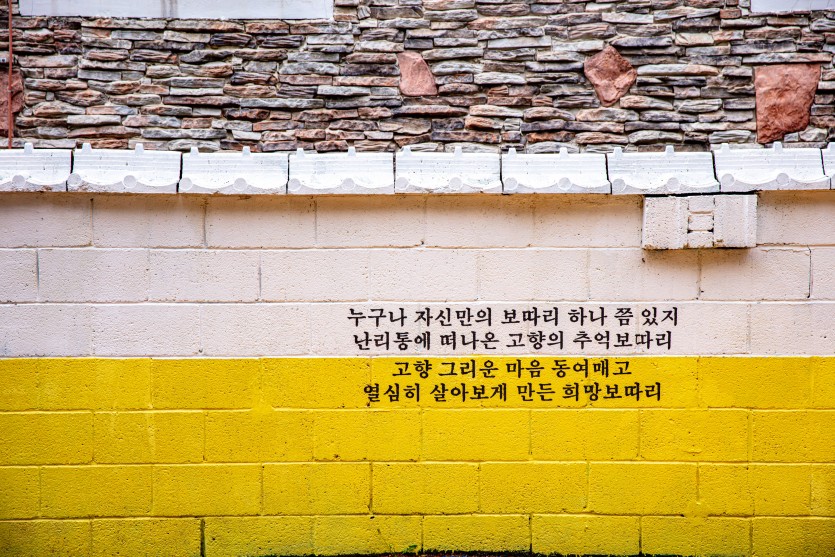 누구나 자신만의 보따리 하나 쯤 있지
난리통에 떠나온 고향의 추억보따리
고향 그리운 마음 동여매고
열심히 살아보게 만든 희망보따리